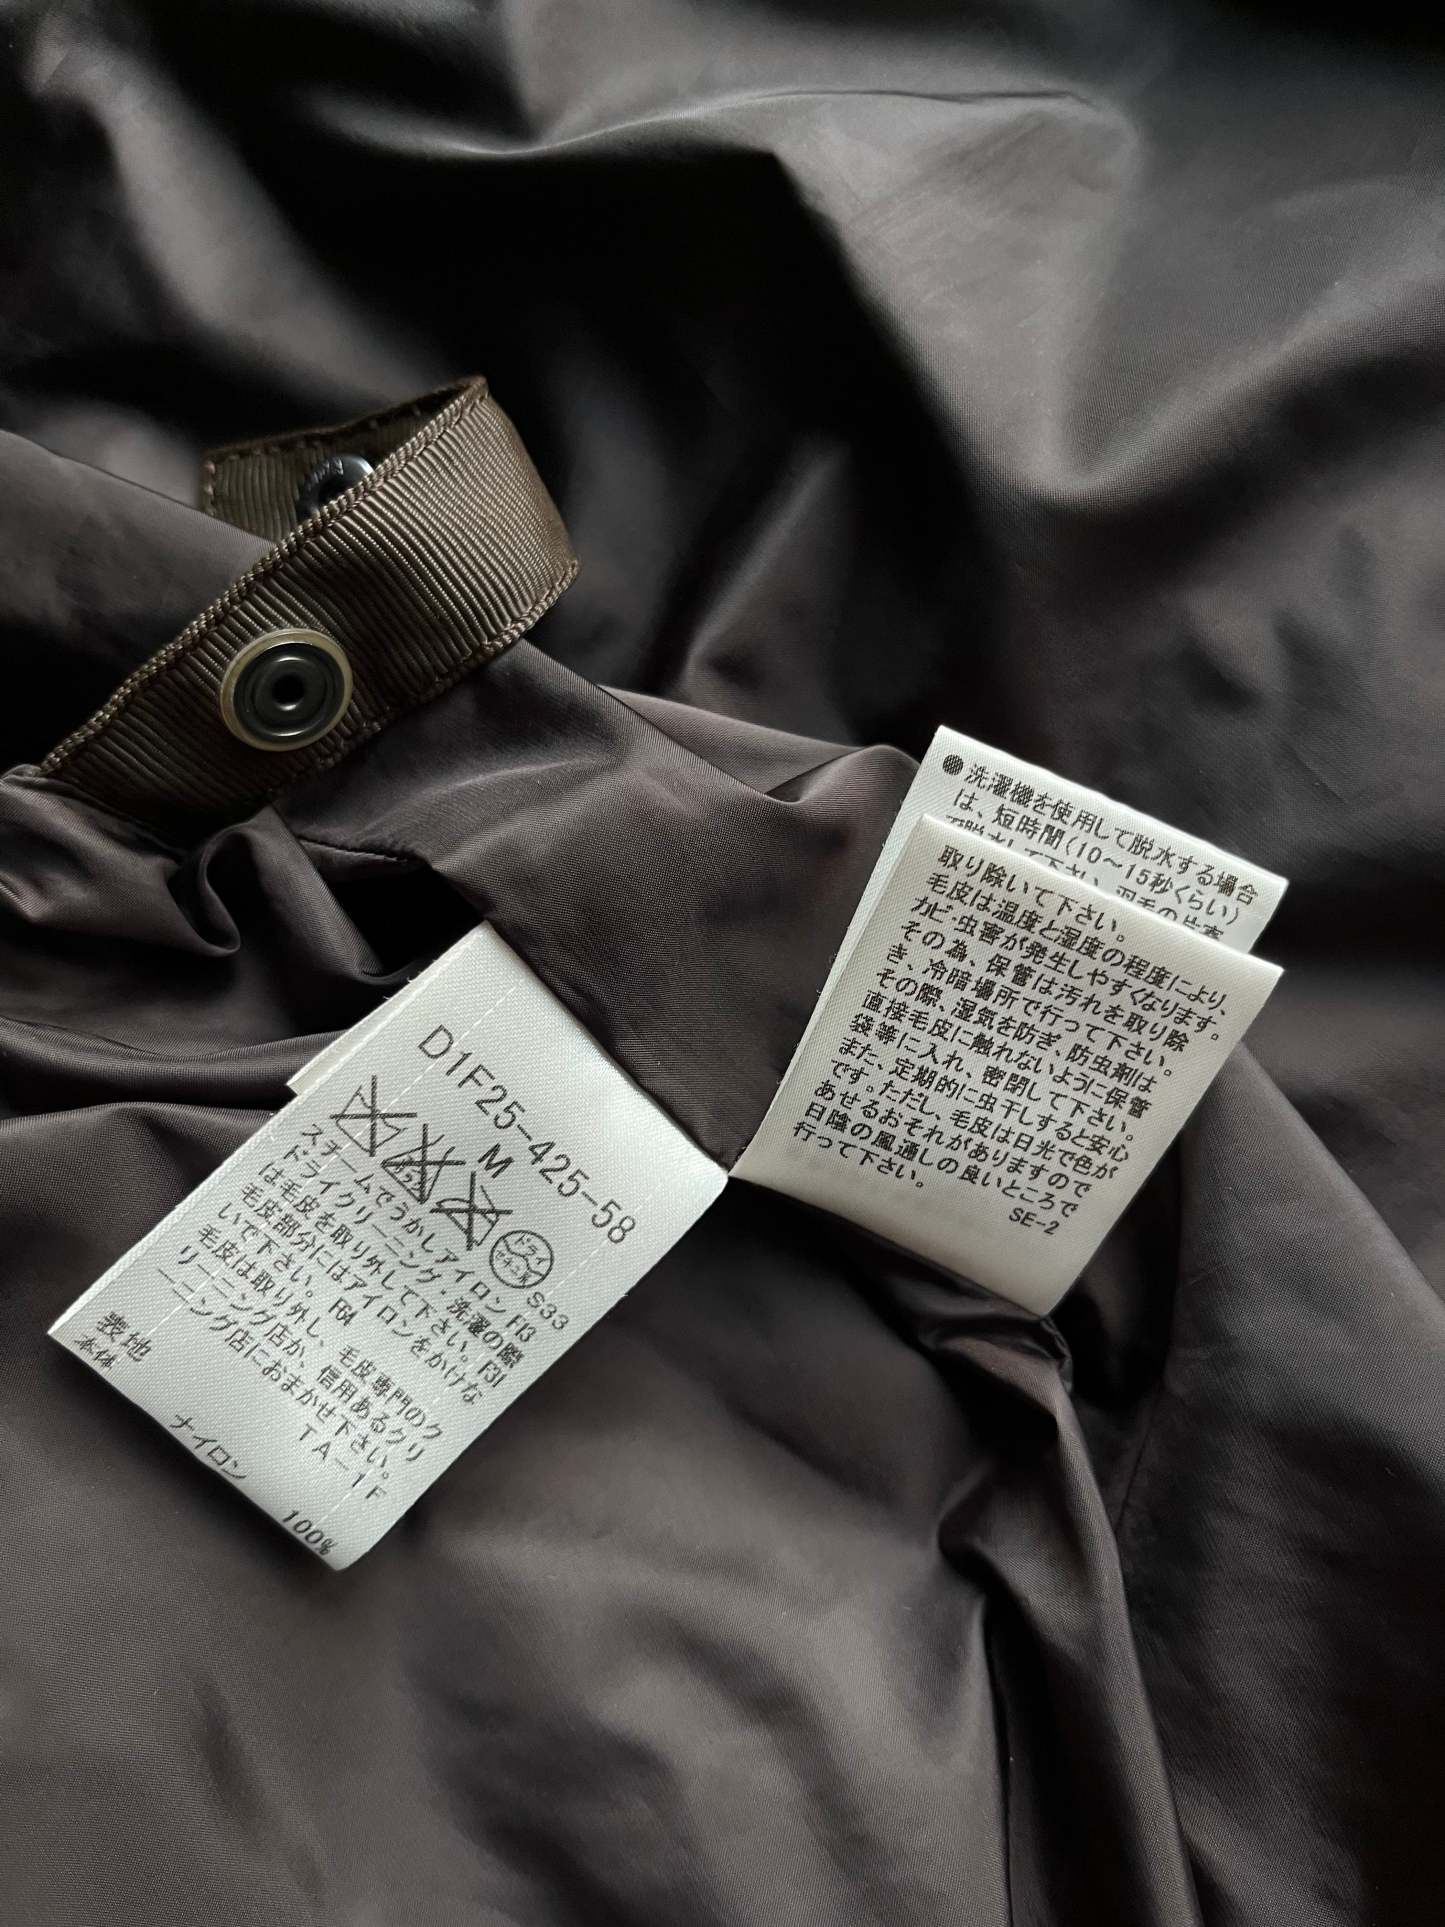 D1F25-425-58
M
ドライ
セキユ系
スチームでうかしアイロン F13 S33
ドライクリーニング・洗濯の際
は毛皮を取り外して下さい。F31
毛皮部分にはアイロンをかけな
いで下さい。F64
毛皮は取り外し、毛皮専門のク
リーニング店か、信用あるクリ
ーニング店におまかせ下さい。
TA-1F
表地
本体
ナイロン 100%
●洗濯機を使用して脱水する場合
は、短時間(10〜15秒くらい)
で脱水して下さい。羽毛の片寄
取り除いて下さい。
毛皮は温度と湿度の程度により、
カビ・虫害が発生しやすくなります。
その為、保管は汚れを取り除
き、冷暗場所で行って下さい。
その際、湿気を防ぎ、防虫剤は
直接毛皮に触れないように保管
袋等に入れ、密閉して下さい。
また、定期的に虫干しすると安心
です。ただし、毛皮は日光で色が
あせるおそれがありますので
日陰の風通しの良いところで
行って下さい。
SE-2